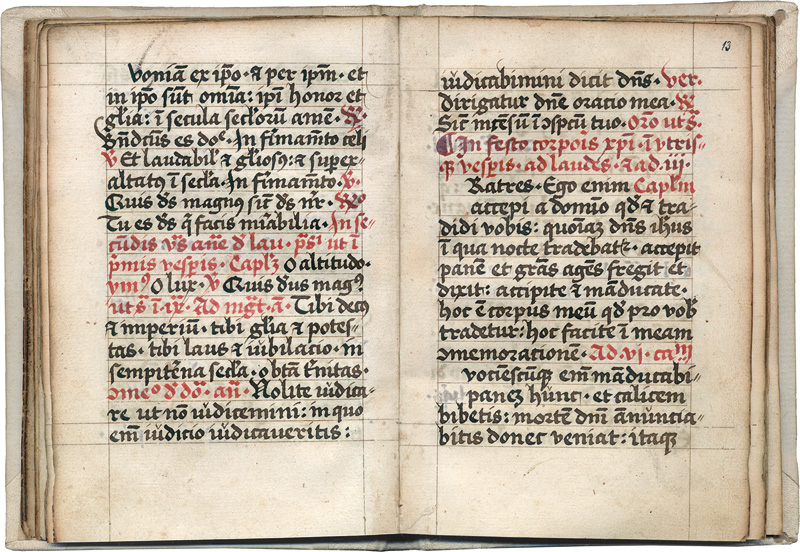 voniā ex ip̄o · & per ip̄m · et
in ip̄o sūt om̄ia: ip̄i honor et
gl̄ia: ī secula secl'orū amē · R̄·
Bn̄dictꝰ es dn̄e · In firmam̄to celi
v̄ Et laudabil' & gl'iosꝰ: & super-
altatꝰ ī secl'a · In firmam̄to · v̄·
Quis dꝰs magnꝰ sicut dꝰs nr̄ · R̄·
Tu es dꝰs q̄ facis mirabilia · In se-
cūdis vꝰs an̄e d' lau · ps' ut ī
p̄mis vesp̄is · Capl'ꝫ O altitudo ·
ymꝰ O lux · v̄ Quis dꝰs magꝰ
ut s̄ ī ix · Ad mḡt · ā · Tibi decꝰ
& imperiū · tibi gl̄ia & potes-
tas · tibi laus & iubilacio · in
sempit̄na secl'a · o bt̄a tīnitas ·
ↄmeō d' do' · an̄ · Nolite iudica-
re ut nō iudicemini: in quo
em̄ iudicio iudicaveritis:
13
iudicabimini dicit dn̄s · ver·
dirigatur dn̄e oratio mea · R̄
Sic' incēsū ī ↄspc̄tu tuo · Or̄o ut s̄·
In festo corpōis xp̄i · ī utris-
qꝫ vesp̄is · ad laudes · & ad · iij ·
Ratres · Ego enim Capl'm
accepi a domino qd' & tra-
didi vobis: quoīaꝫ dn̄s ih̄us
ī qua nocte tradebatr̄ · accepit
panē et grās agēs fregit et
dixit: accipite & māducate ·
hoc ē corpus meū qd' pro vob'
tradetur: hoc facite ī meam
ↄmemorationē · Ad · vj · ca
vociēscūqꝫ em̄ māducabi-
panē hūnc · et calicem
bibetis: mortē dn̄i an̄uncia-
bitis donec veniat: itaqꝫ